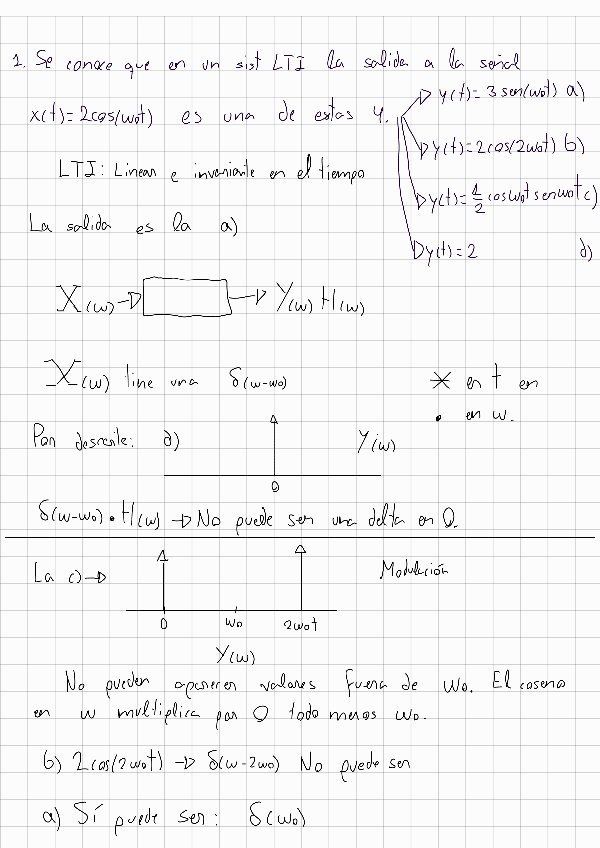 1. Se conoce que en un sist LTI la salida a la señal
x(t)=2cos(w₀t) es una de estas 4.
y(t)=3sen(w₀t) a)
y(t)=2cos(2w₀t) b)
y(t)=1/2 cosw₀t senw₀t c)
y(t)=2 d)
LTI: Linear e invariante en el tiempo
La salida es la a)
X(w) → Y(w) H(w)
X(w) tine una δ(w-w₀)
* en t en
• en w.
Por descarte: d)
Y(w)
0
δ(w-w₀) • H(w) → No puede ser una delta en 0.
La c) →
Modulación
0 w₀ 2w₀t
Y(w)
No pueden aparecer valores fuera de w₀. El coseno
en w multiplica por 0 todo menos w₀.
b) 2cos(2w₀t) → δ(w-2w₀) No puede ser
a) Sí puede ser: δ(w₀)